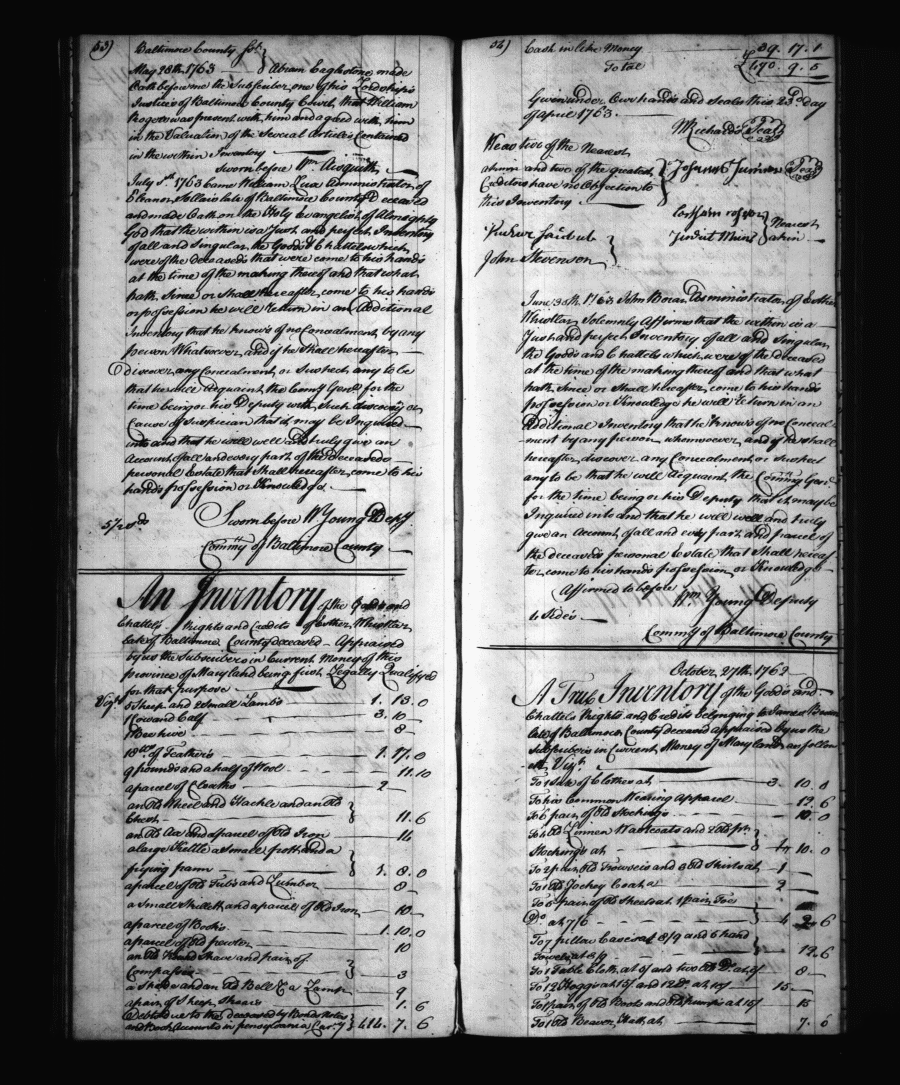 53)
Baltimore County Sct.
May 28th. 1763 Abram Eaglestone made
Oath before me the Subscriber, one of his Lordship's
Justices of Baltimore County Court, that William
Rogers was present with him and agreed with him
in the Valuation of the Several articles Contained
in the within Inventory
Sworn before Wm. Aisquith
July 5th. 1763 Came William Lux Administrator of
Eleanor late of Baltimore County Deceased
and made Oath on the Holy Evangelist of Almighty
God that the within is a Just and perfect Inventory
of all and Singular the Goods & Chattels which
were of the deceased that were come to his hands
at the time of the making thereof and that what
hath Since or Shall hereafter come to his hands
or possession he will return in an Additional
Inventory that he knows of no Concealment by any
person Whatsoever and if he Shall hereafter
Discover any Concealment or Suspect any to be
that he will acquaint the Comy. Genl. for the
time being or his Deputy with Such discovery or
Cause of Suspicion that it may be Inquired
into and that he will well and truly give an
Account of all and every part of the Deceaseds
personal Estate that Shall hereafter come to his
hands possession or Knowledge
Sworn before W. Young Depy.
Commy. of Baltimore County
An Inventory of the Goods and
Chattels Rights and Credits of Esther Whistler
late of Baltimore County deceased Appraised
by us the Subscribers in Current Money of this
province of Maryland being first Legally Qualifyed
for that purpose
Vizt. 5 Sheep and 2 Small Lambs 1. 13. 0
1 Cow and Calf 3. 10
1 Bee hive 8
18 lbs. of Feathers 1. 17. 0
9 pounds and a half of Wool 11. 10
a parcel of Cloaths 2
an Old Wheel and Hackle and an Old
Chest 11. 6
an Old Axe and a parcel of Old Iron 14
a large Kettle a Small pott and a
frying pann 1. 8. 0
a parcel of Old Tubs and Lumber 8
a Small Skillett and a parcel of Old Iron 10
a parcel of Books 1. 10. 0
a parcel of Old pewter 10
an Old Round Shave and pair of
Compasses 3
a Spade and an Old Bell & a Lamp 9
a pair of Sheep Shears 1. 6
Debts due to the deceased by Bonds Notes
and Book Accounts in pensylvania Curry. 414. 7. 6
54)
Cash in like Money 39. 17. 1
Total £490. 9. 5
Given under Our hands and Seals this 23d. day
of April 1763.
Seal
We as two of the Nearest
akin and two of the greatest
Creditors have no Objection to
this Inventory
Seal
Nearest
akin
John Stevenson
June 30th. 1763 John Administrator of Esther
Whistler Solemnly Affirms that the within is a
Just and perfect Inventory of all and Singular
the Goods and Chattels which were of the deceased
at the time of the making thereof and that what
hath Since or Shall hereafter come to his hands
possession or Knowledge he will return in an
Additional Inventory that he Knows of no Conceal
ment by any person whomsoever and if he Shall
hereafter discover any Concealment or Suspect
any to be that he will Acquaint the Commy. Genl.
for the time being or his Deputy that it may be
Inquired into and that he will well and truly
give an Account of all and every part and parcel of
the deceaseds personal Estate that Shall hereaf
ter come to his hands possession or Knowledge
Affirmed to before Wm. Young Deputy
Commy. of Baltimore County
October 27th. 1762
A True Inventory of the Goods and
Chattels Rights and Credits belonging to James
late of Baltimore County deceased appraised by us the
Subscribers in Current Money of Maryland as follow
eth Vizt.
To 1 Sute of Clothes at 3. 10. 0
To his Common Wearing Apparel 12. 6
To 6 pair of Old Stockings 10. 0
To 4 Old Linnen Wastcoats and 2 Old pr.
Stockings at 10. 0
To 2 pair Old Trowsers and 2 Old Shirts at 1
To 1 Old Jockey Coat a 2
To 5 pair of Old Sheets at 1 pair Too
Do. at 7/6 4 2. 6
To 7 pillow Cases at 8/9 and 6 hand
Towels at 3/9 12. 6
To 1 Table Cloth at 5/ and two Old Do. at 3/ 8
To 12 Hoggs at 15/ and 12 Do. at 10/ 15
To 1 pair of Old Boots and Old pumps at 15/ 15
To 1 Old Beaver Hatt at 7. 6